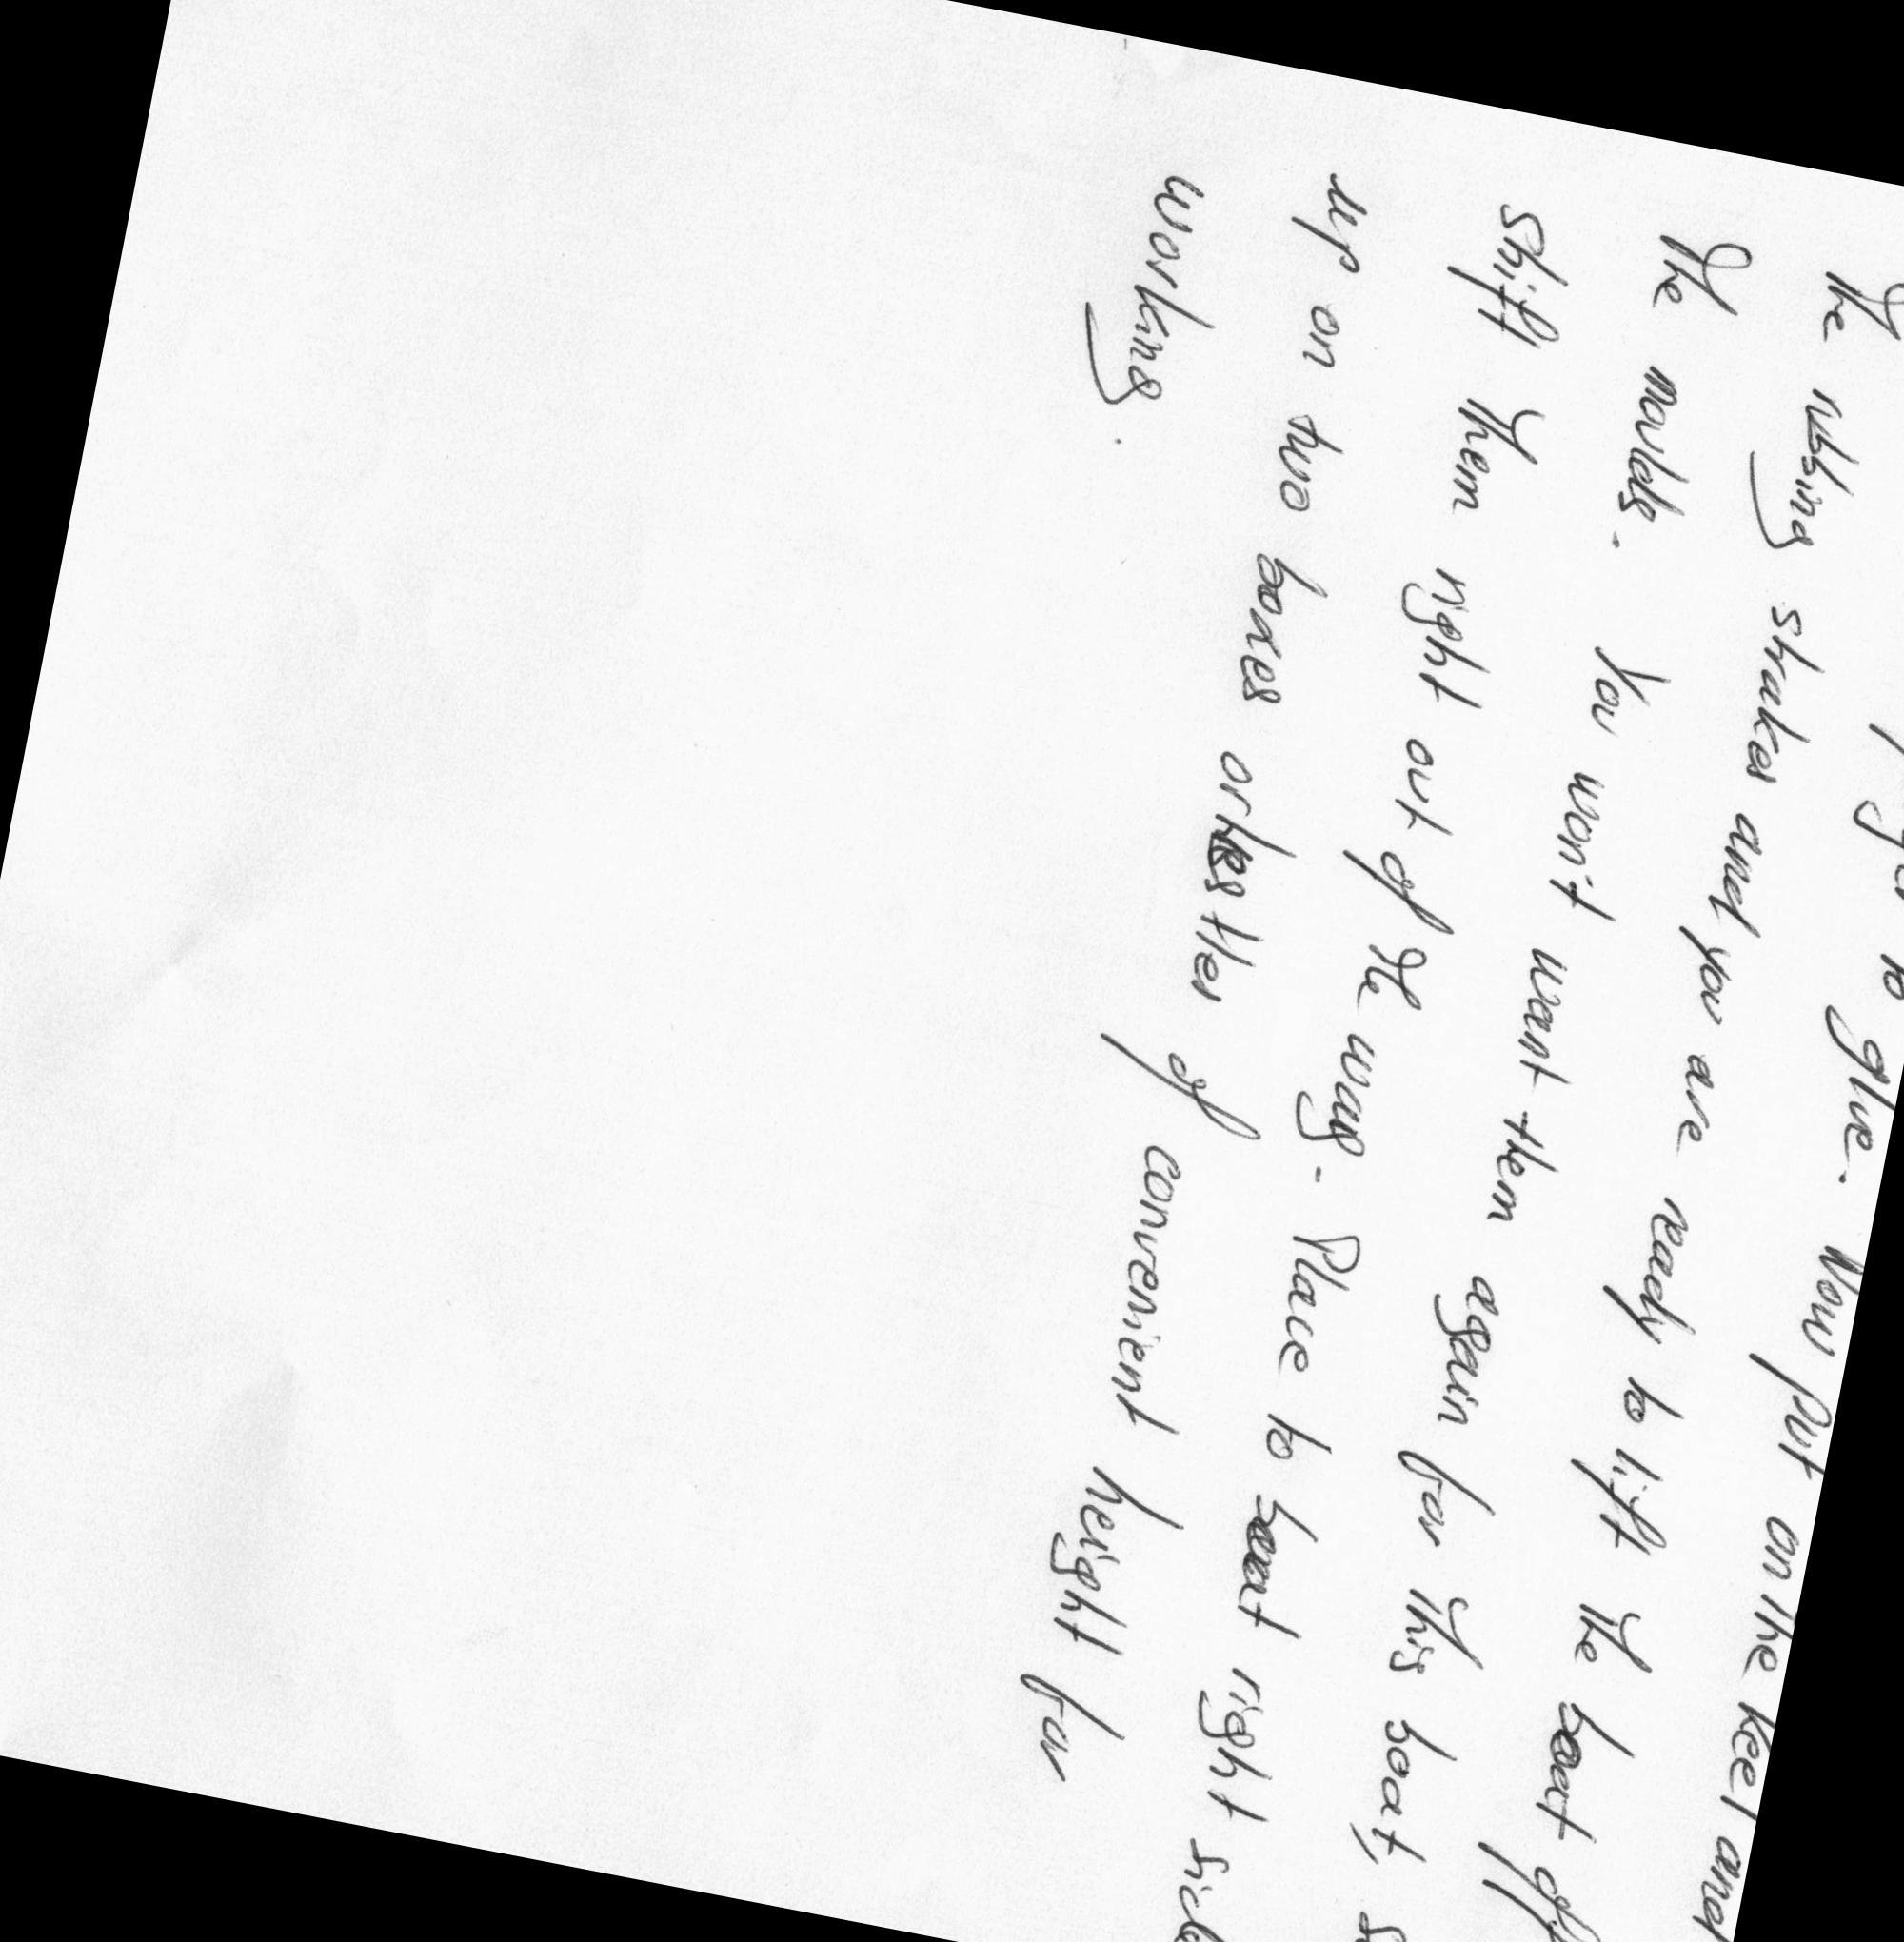 to glue. Now put on the keel and
the rubbing strakes and you are ready to lift the boat off
the moulds. You won't want them again for this boat,
shift them right out of the way. Place to boat right
up on two boxes or kesttes of convenient height for
working.